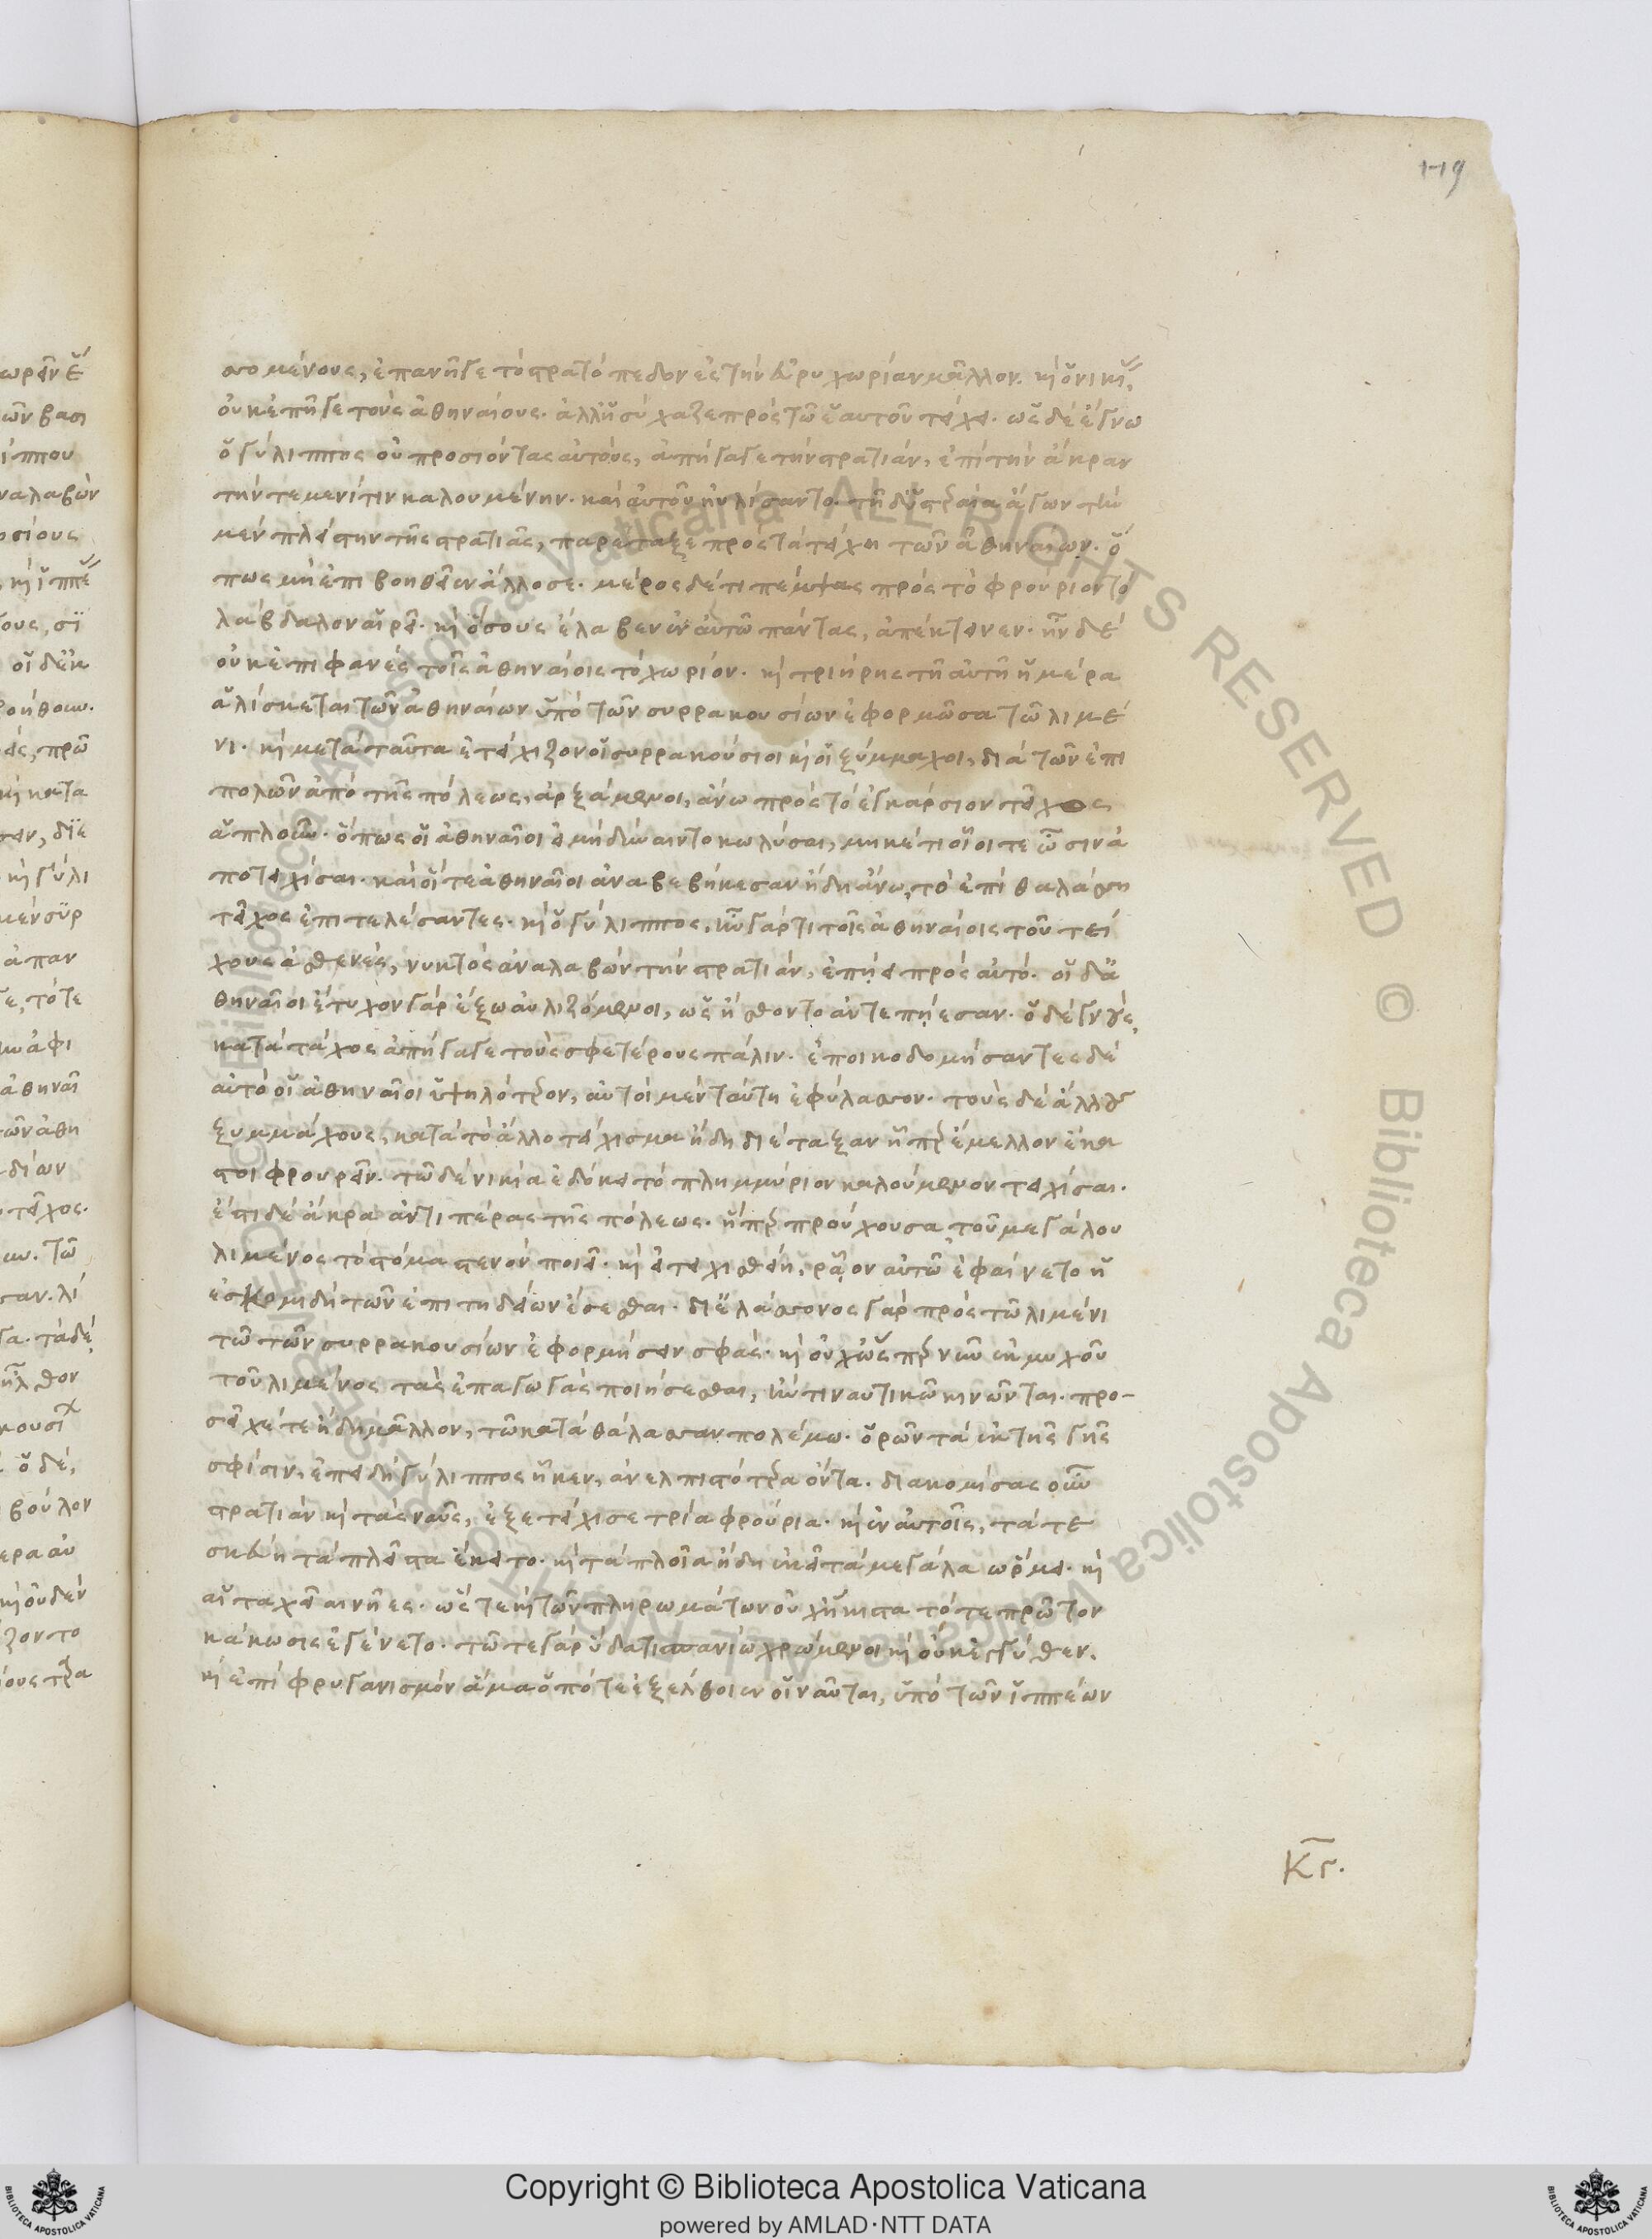 119
σομένους, ἐπανῆγε τὸ στρατόπεδον ἐς τὴν εὐρυχωρίαν μᾶλλον. καὶ ὁ νικίας
οὐκ ἐπῆγε τοὺς ἀθηναίους. ἀλλ' ἡσύχαζε πρὸς τῶ ἑαυτοῦ τείχει. ὡς δὲ ἔγνω
ὁ γύλιππος οὐ προσιόντας αὐτούς, ἀπήγαγε τὴν στρατιὰν, ἐπὶ τὴν ἄκραν
τὴν τεμενίτιν καλουμένην. καὶ αὐτοῦ ηὐλίσαντο. τῆ δ' ὑστεραία ἄγων τὴν
μὲν πλείστην τῆς στρατιᾶς, παρέταξε πρὸς τὰ τείχη τῶν ἀθηναίων. ὅ
πως μὴ ἐπιβοηθοῖεν ἄλλοσε. μέρος δέ τι πέμψας πρὸς τὸ φρούριον τὸ
λάβδαλον αἱρεῖ. καὶ ὅσους ἔλαβεν ἐν αὐτῶ πάντας, ἀπέκτεινεν. ἦν δὲ
οὐκ ἐπιφανὲς τοῖς ἀθηναίοις τὸ χωρίον. καὶ τριήρης τῆ αὐτῆ ἡμέρα
ἁλίσκεται τῶν ἀθηναίων ὑπὸ τῶν συρρακουσίων ἐφορμῶσα τῶ λιμέ
νι. καὶ μετὰ ταῦτα ἐτείχιζον οἱ συρρακούσιοι καὶ οἱ ξύμμαχοι, διὰ τῶν ἐπι
πολῶν ἀπὸ τῆς πόλεως, ἀρξάμενοι, ἄνω πρὸς τὸ ἐγκάρσιον τεῖχος
ἁπλοῦν. ὅπως οἱ ἀθηναῖοι εἰ μὴ δύναιντο κωλῦσαι, μηκέτι οἷοί τε ὦσιν ἀ
ποτειχίσαι. καὶ οἵ τε ἀθηναῖοι ἀναβεβήκεσαν ἤδη ἄνω, τὸ ἐπὶ θαλάσση
τεῖχος ἐπιτελέσαντες. καὶ ὁ γύλιππος, ἦν γάρ τι τοῖς ἀθηναίοις τοῦ τεί
χους ἀσθενές, νυκτὸς ἀναλαβὼν τὴν στρατιὰν, ἐπήει πρὸς αὐτό. οἱ δ' ἀ
θηναῖοι ἔτυχον γὰρ ἔξω αὐλιζόμενοι, ὡς ἤσθοντο ἀντεπήεσαν. ὁ δὲ γνοὺς,
κατὰ τάχος ἀπήγαγε τοὺς σφετέρους πάλιν. ἐποικοδομήσαντες δὲ
αὐτὸ οἱ ἀθηναῖοι ὑψηλότερον, αὐτοὶ μὲν ταύτη ἐφύλασσον. τοὺς δὲ ἄλλους
ξυμμάχους, κατὰ τὸ ἄλλο τείχισμα ἤδη διέταξαν ἧπερ ἔμελλον ἕκα
στοι φρουρεῖν. τῶ δὲ νικία ἐδόκει τὸ πλημμύριον καλούμενον τειχίσαι.
ἔστι δὲ ἄκρα ἀντιπέρας τῆς πόλεως. ἥπερ προύχουσα τοῦ μεγάλου
λιμένος τὸ στόμα στενὸν ποιεῖ. καὶ εἰ τειχισθείη, ῥᾶον αὐτῶ ἐφαίνετο ἡ
ἐσκομιδὴ τῶν ἐπιτηδείων ἔσεσθαι. δι' ἐλάσσονος γὰρ πρὸς τῶ λιμένι
τῶ τῶν συρρακουσίων ἐφορμήσειν σφᾶς. καὶ οὐχ ὥσπερ νῦν ἐκ μυχοῦ
τοῦ λιμένος τὰς ἐπαγωγὰς ποιήσεσθαι, ἤν τι ναυτικῶ κινῶνται. προ-
σεῖχέ τε ἤδη μᾶλλον, τῶ κατὰ θάλασσαν πολέμω. ὁρῶν τὰ ἐκ τῆς γῆς
σφίσιν, ἐπειδὴ γύλιππος ἧκεν, ἀνελπιστότερα ὄντα. διακομίσας οὖν
στρατιὰν καὶ τὰς ναῦς, ἐξετείχισε τρία φρούρια. καὶ ἐν αὐτοῖς, τά τε
σκεύη τὰ πλεῖστα ἔκειτο. καὶ τὰ πλοῖα ἤδη ἐκεῖ τὰ μεγάλα ὥρμει. καὶ
αἱ ταχεῖαι νῆες. ὥστε καὶ τῶν πληρωμάτων οὐχ ἥκιστα τότε πρῶτον
κάκωσις ἐγένετο. τῶ τε γὰρ ὕδατι σπανίω χρώμενοι καὶ οὐκ ἐγγύθεν.
καὶ ἐπὶ φρυγανισμὸν ἅμα ὁπότε ἐξέλθοιεν οἱ ναῦται, ὑπὸ τῶν ἱππέων
Κς.
Copyright © Biblioteca Apostolica Vaticana
powered by AMLAD·NTT DATA